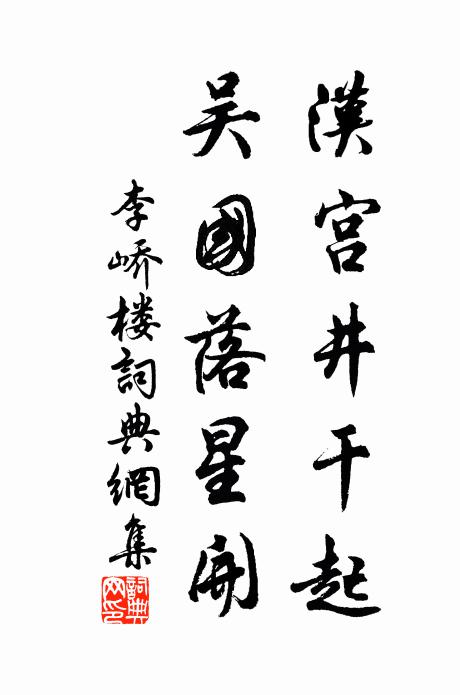 漢宮井干起
吴國落星開
李嶠楼詞典網集
詞典网印